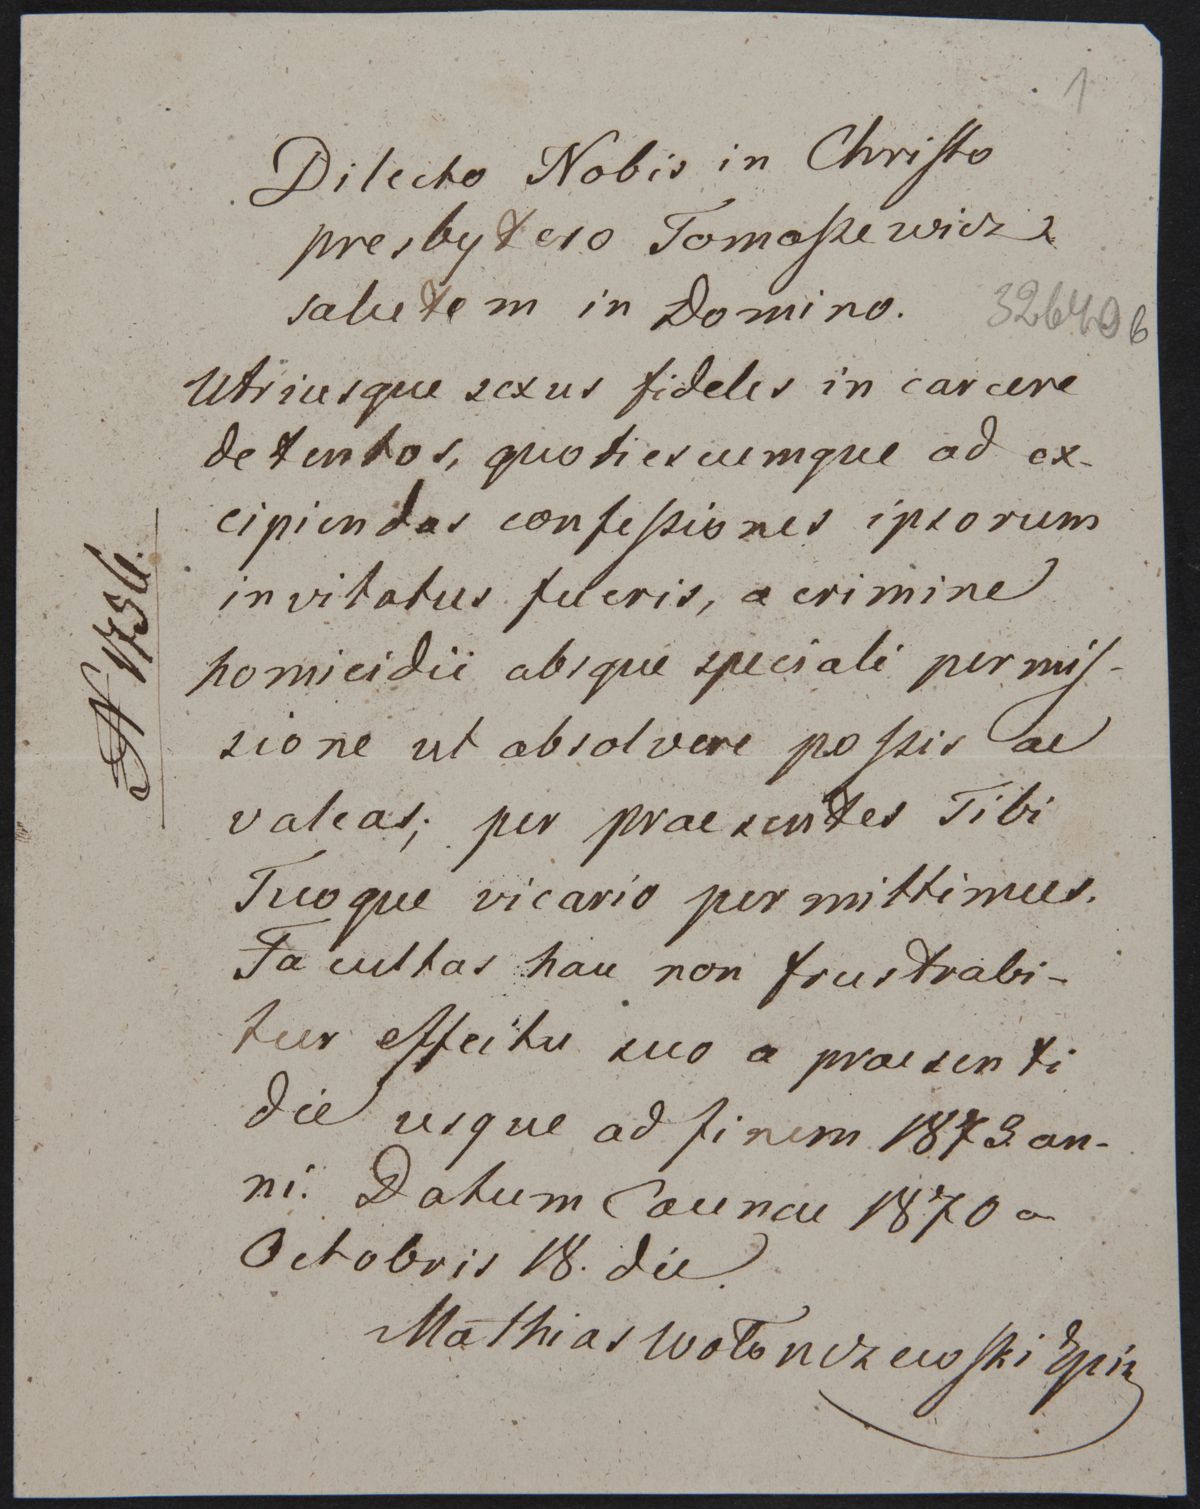 1
Dilecto Nobis in Christo
presbytero Tomaszewicz
salutem in Domino.
32640 b
Utriusque sexus fideles in carcere
detentos, quotiescumque ad ex-
cipiendas confessiones ipsorum
invitatus fueris, a crimine
homicidii absque speciali permis-
sione ut absolvere possis ac
valeas; per praesentes Tibi
Tuoque vicario permittimus.
Facultas haec non frustrabi-
tur effectu suo a praesenti
die usque ad finem 1873 an-
ni. Datum Caunae 1870 a
Octobris 18. die
Mathias Wołonczewski Epis
N 1736.